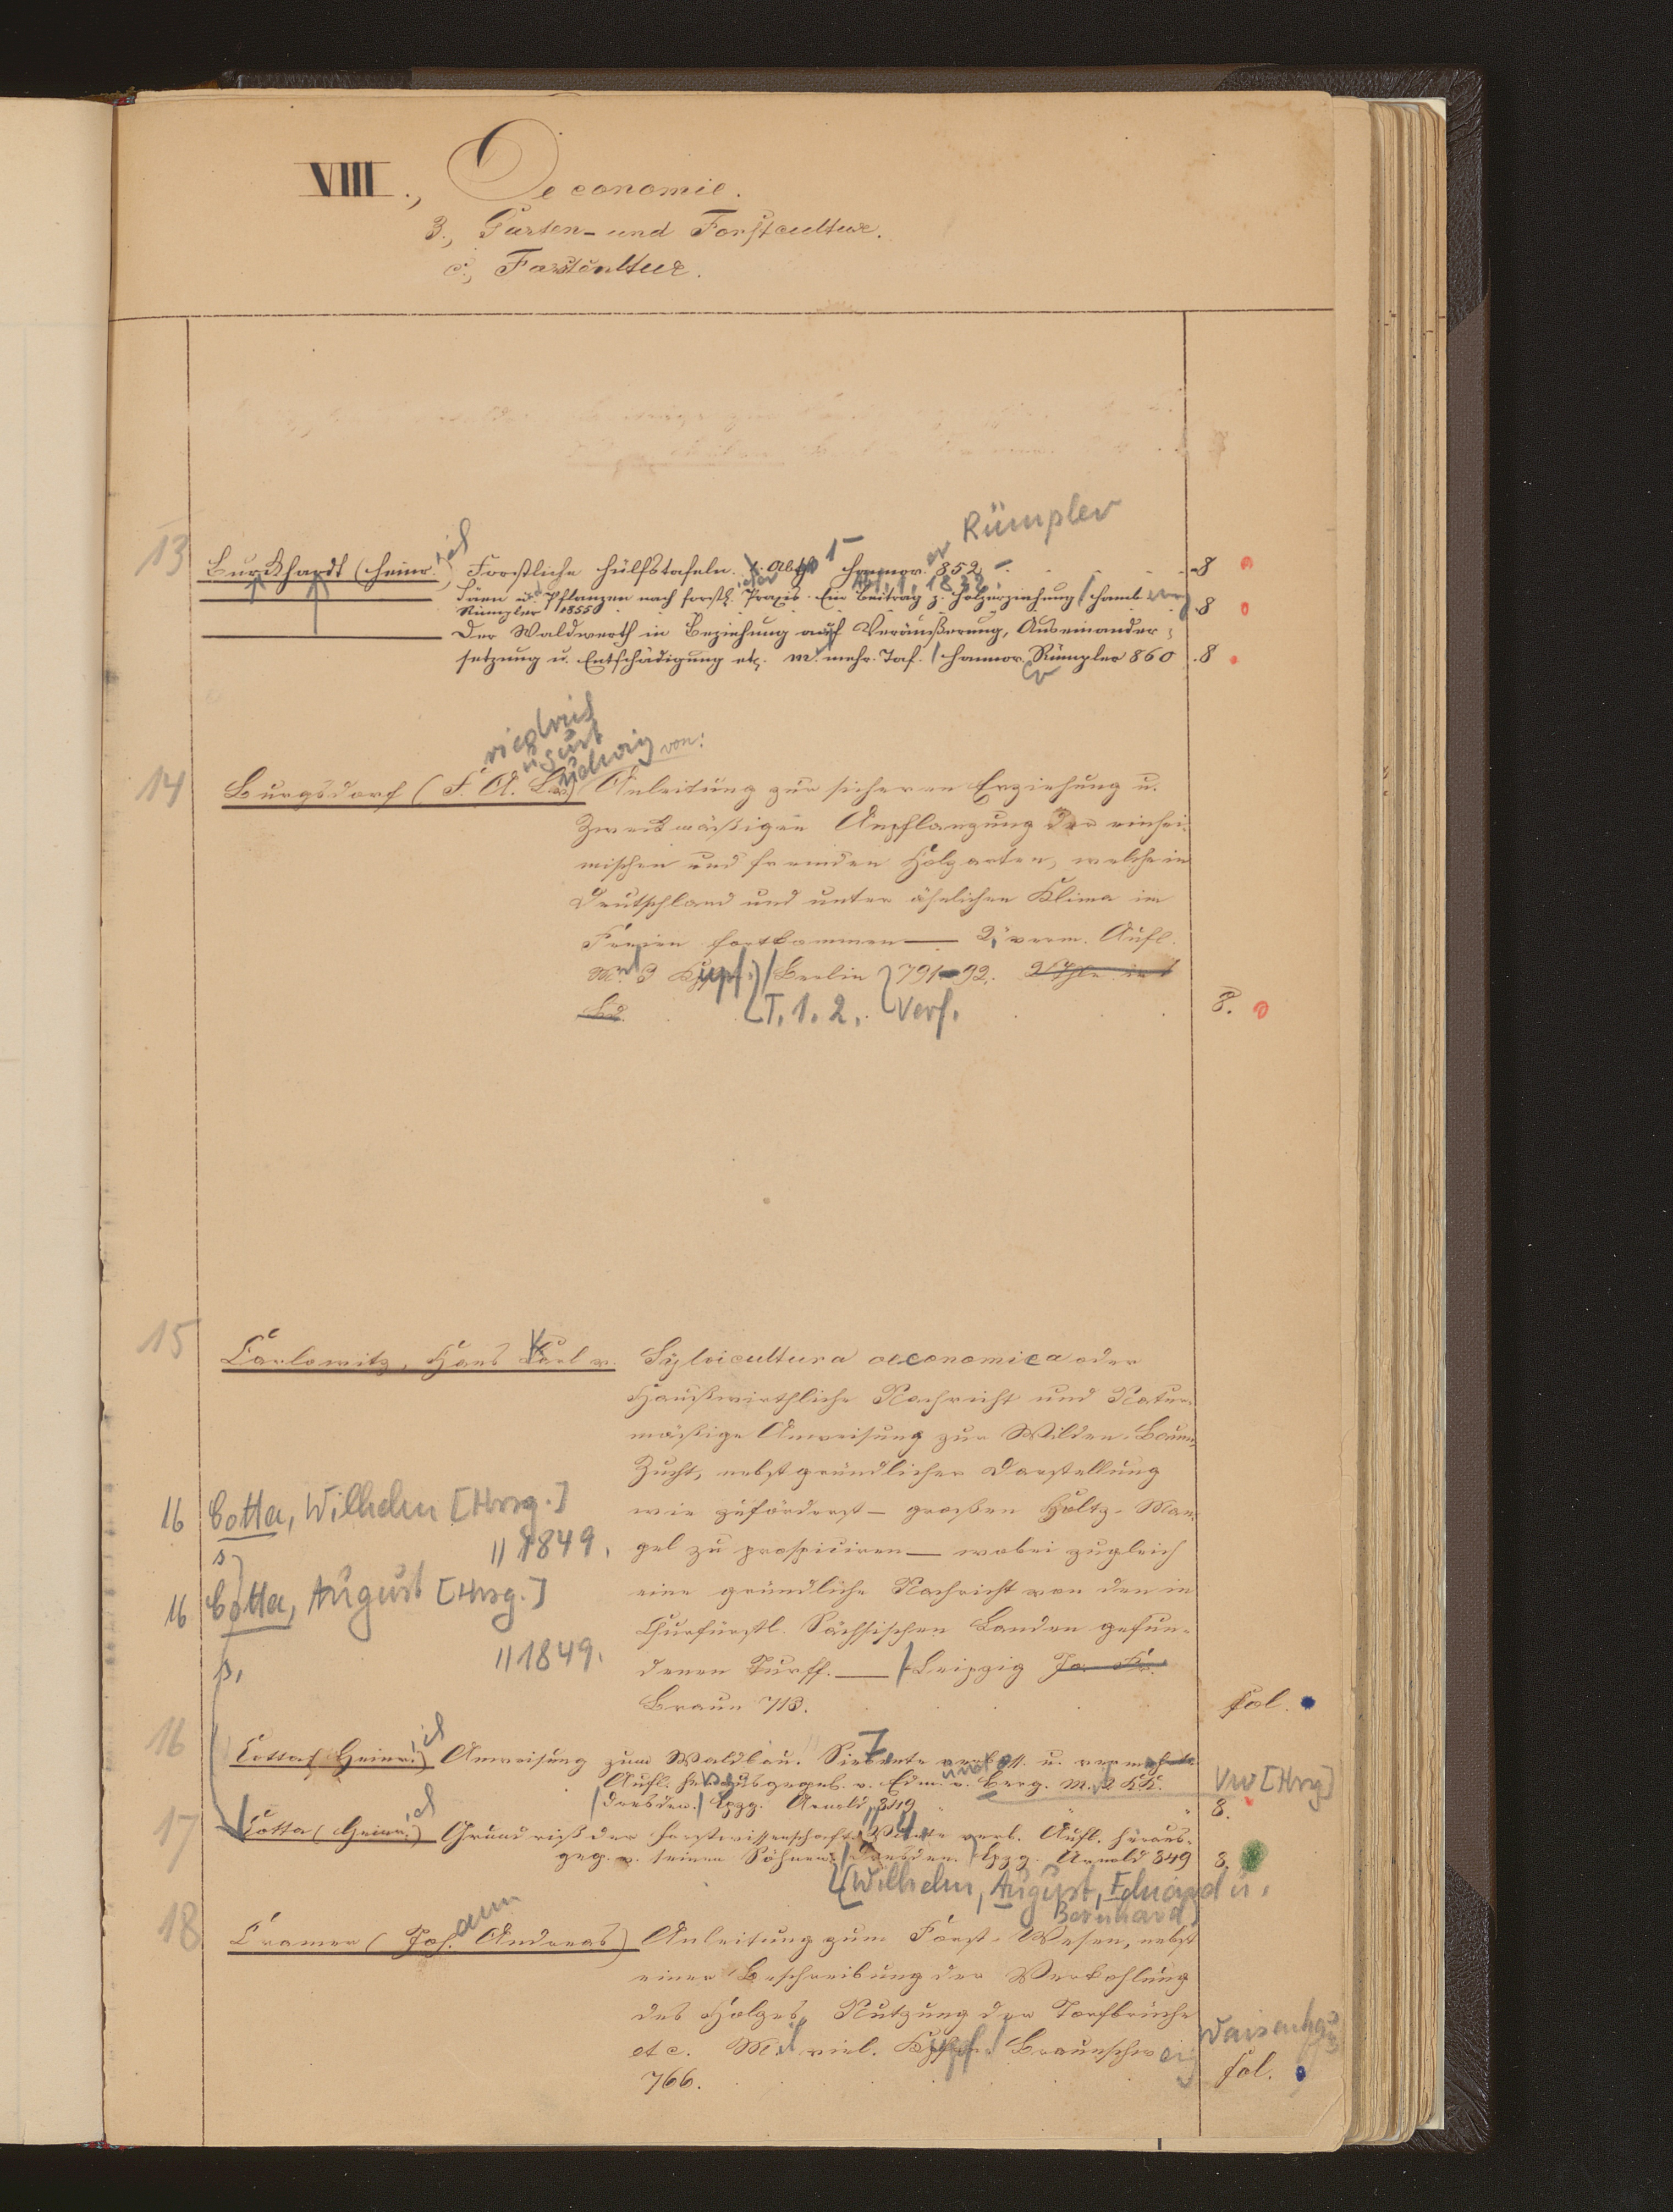 VIII., Oeconomie.
3., Garten- und Forstcultur.
c., Forstcultur.
Rümpler
13 Burkhardt (Heinr.ich) Forstliche Hülfstafeln. 1. Abth. Hannover 852. 8
Säen u. Pflanzen nach forstl. Praxis. Ein Beitrag z. Holzerziehung / Hannb
Rümpler 1855. 8
Der Waldwerth in Beziehung auf Veräußerung, Auseinander-
setzung u. Entschädigung etc. m. mehr. Taf. / Hannov. Rümpler 860 .8
riedrich
ugust
udwig von:
14 Burgsdorf (F. A. L. v.) Anleitung zur sicheren Erziehung u.
Zweckmäßigen Anpflanzung der einhei-
mischen und fremden Holzarten, welche in
Deutschland und unter ähnlichen Klima im
Freien fortkommen — 2. verm. Aufl.
M. 3 Kupf. / Berlin 791-92. 2 Thle in 1
Bd. [T. 1. 2. Verf. 8.
15 Carlowitz, Hans Karl v. Sylvicultura oeconomica oder
Haußwirthliche Nachricht und Natur-
mäßige Anweisung zur Wilden-Baum-
Zucht, nebst gründlicher Darstellung
wie zuförderst — großen Holtz-Man-
gel zu prospiciren — wobei zugleich
eine gründliche Nachricht von den in
Churfürstl. Sächsischen Landen gefun-
denen Turff. — / Leipzig Jo. Fr.
Braun 713. fol.
16 Cotta, Wilhelm [Hrsg.]
s. 1849.
16 Cotta, August [Hrsg.]
s. 1849.
16 Cotta (Heinr.ich) Anweisung zum Waldbau. Siebente verbess. u. vermehrte
Aufl. herausgegeb. v. Edm. v. Berg. m. 2 KK. [Hrsg]
/ Dresden. / Lpzg. Arnold, 849 8.
17 Cotta (Heinr.ich) Grundriß der Forstwissenschaft. 4. verb. Aufl. heraus-
geg. v. seinen Söhnen / Dresden. / Lpzg. Arnold 849 8.
[Wilhelm, August, Eduard u.
Bernhard]
18 Cramer (Joh.ann Andreas) Anleitung zum Forst-Wesen, nebst
einer Beschreibung der Verkohlung
des Holzes, Nutzung der Torfbrüche
etc. Mit viel. Kupf. / Braunschweig Waisenhaus
766. fol.